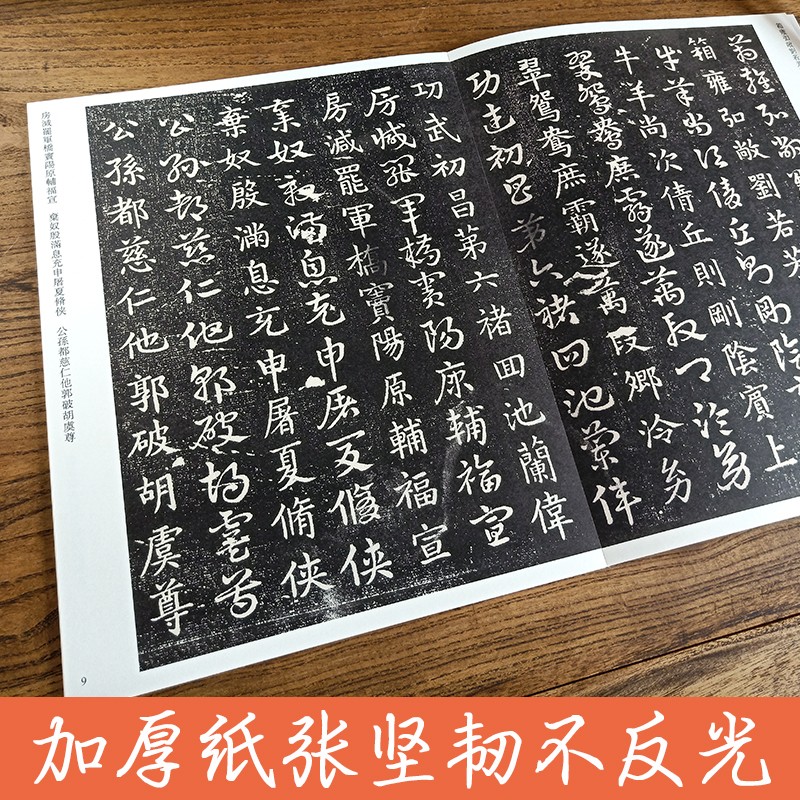 箱雍弘敞劉若芳
牛羊尚次倩丘則剛陰賓上
牛羊尚次倩丘則剛陰賓上
翠鴛鴦庶霸遂萬段卿泠
翠鴛鴦庶霸遂萬段卿泠
功武初昌第六褚回池蘭偉
功武初昌第六褚回池蘭偉
房減罷軍橋竇陽原輔福宣
房減罷軍橋竇陽原輔福宣
棄奴殷滿息充申屠夏脩俠
棄奴殷滿息充申屠夏脩俠
公孫都慈仁他郭破胡虞尊
公孫都慈仁他郭破胡虞尊
房減罷軍橋竇陽原輔福宣 棄奴殷滿息充申屠夏脩俠 公孫都慈仁他郭破胡虞尊
9
加厚纸张坚韧不反光